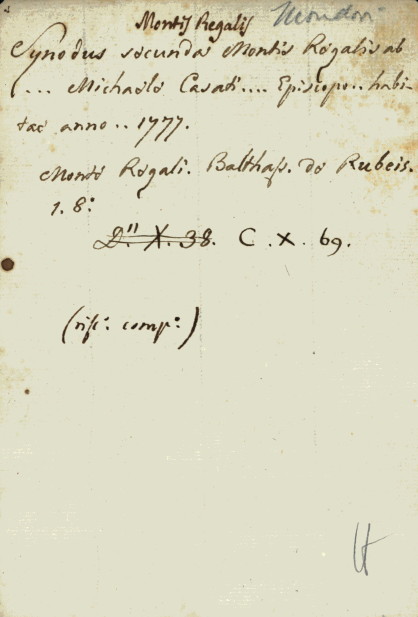 Montis Regalis Mondovi
Synodus secunda Montis Regalis ab
... Michaele Casati .... Episcopo .. habi-
tae anno .. 1777.
Monte Regali. Balthass. de Rubeis.
1. 8:
D." X. 38. C. X. 69.
(rift: comp:)